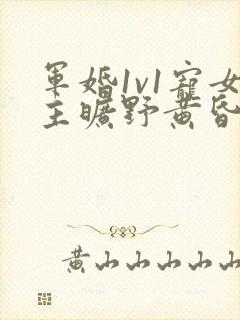 軍婚1v1寵女
主曠野黃昏
黃山山山山山